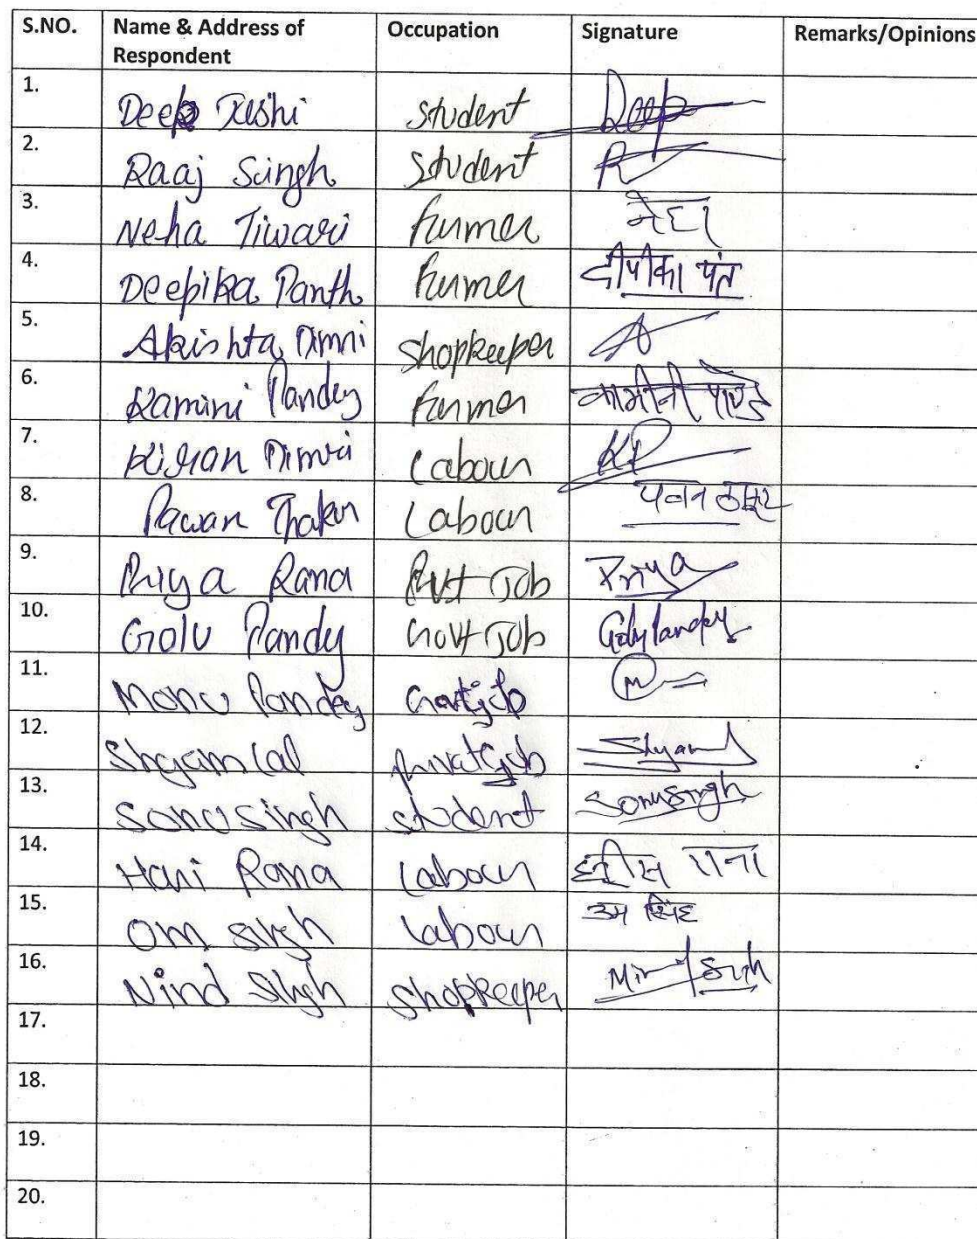 S.NO. Name & Address of Respondent Occupation Signature Remarks/Opinions
1. Deep Joshi student Deep
2. Raaj Singh student R
3. Neha Tiwari Farmer नेहा
4. Deepika Panth Farmer दीपीका पंत
5. Akishta Dimri shopkeeper A
6. Kamini Pandey Farmer कामीनी पाण्डे
7. Kiran Dimri Labour KD
8. Pawan Thakur Labour पवन ठाकुर
9. Priya Rana Pvt Job Priya
10. Golu Pandy Govt Job Golu Pandey
11. Monu Pandey Govt job M
12. Shyam lal private job Shyam
13. Sonu singh student Sonu singh
14. Hari Rana Labour राना
15. Om singh Labour उम सिंह
16. singh shopkeeper Singh
17.
18.
19.
20.